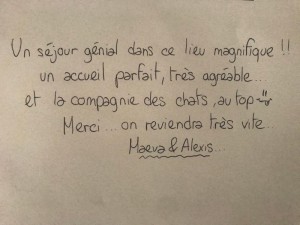 Un séjour génial dans ce lieu magnifique !!
un accueil parfait, très agréable...
et la compagnie des chats, au top
Merci... on reviendra très vite...
Maeva & Alexis...